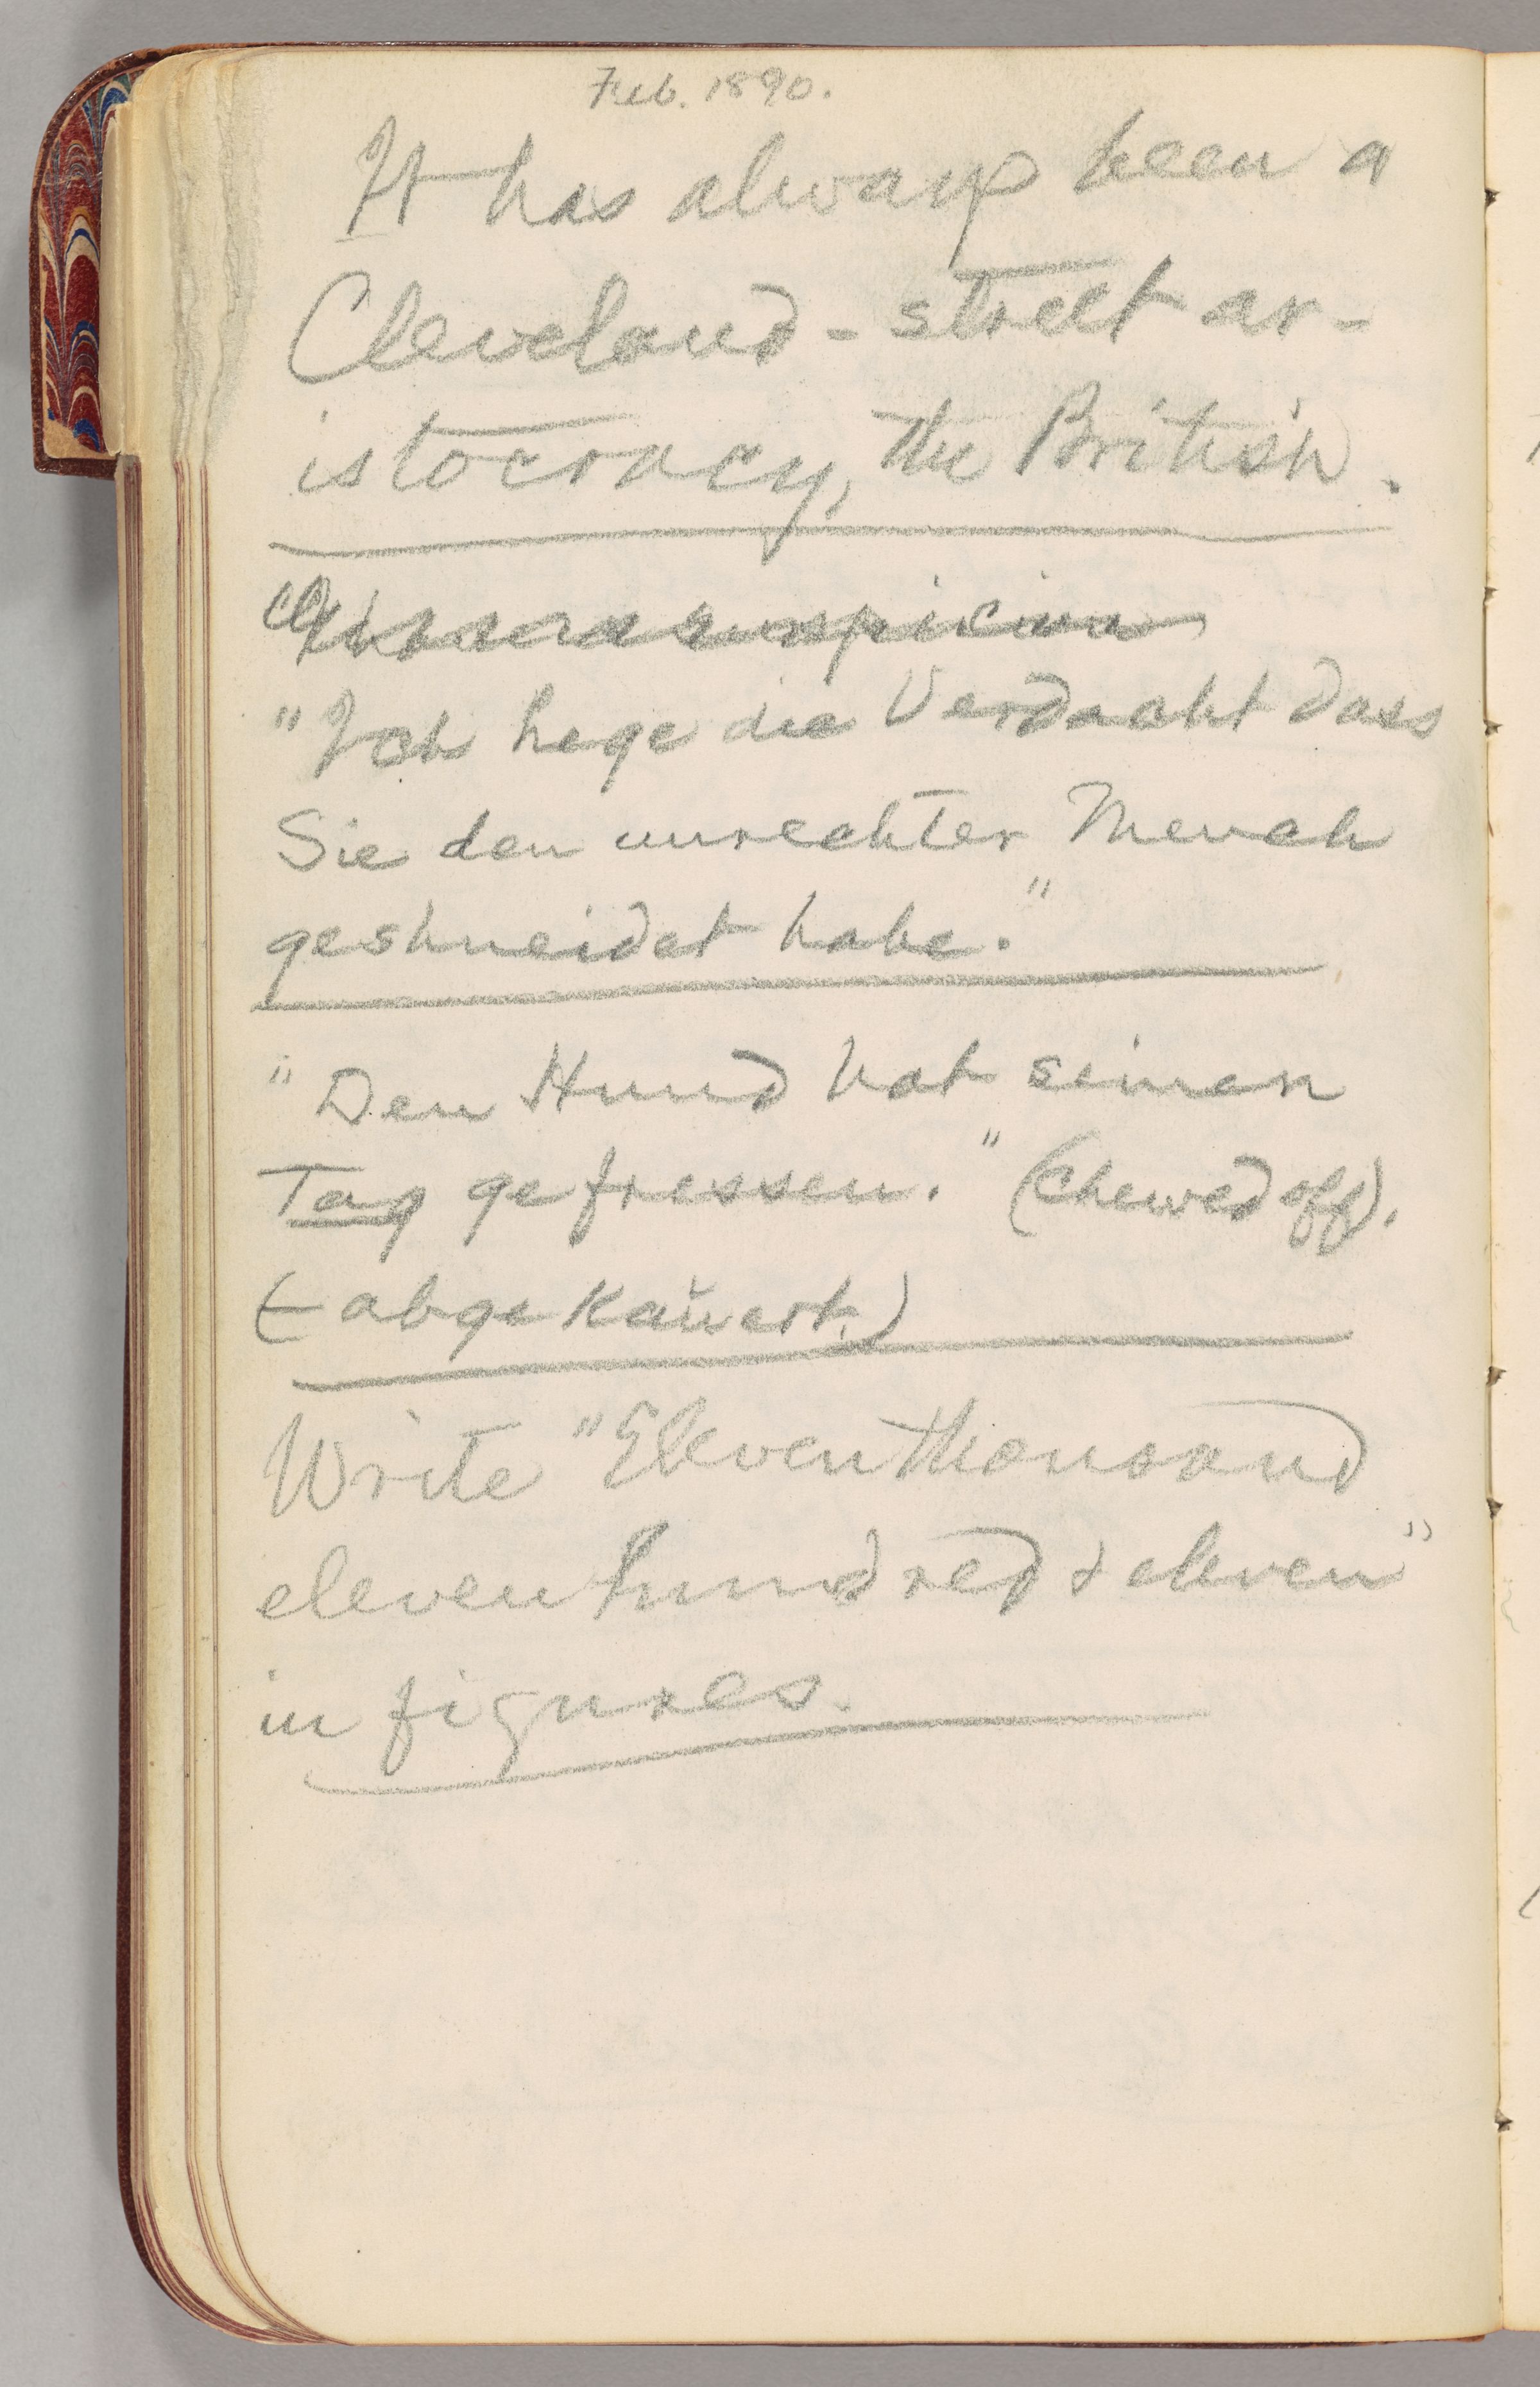 Feb. 1890.
It has always been a
Cleveland-street ar-
istocracy, the British.
suspicion
"Ich hege die Verdacht dass
Sie den unrechter Mench
geshneidet habe."
"Den Hund hat seinen
Tag gefressen." (Chewed off).
(— abgekauert.)
Write "Eleven thousand
eleven hundred & eleven"
in figures.